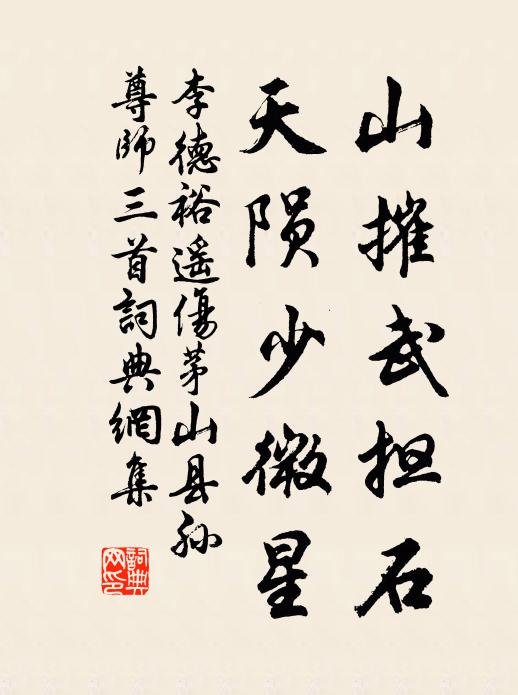 山摧武担石
天陨少微星
李德裕遥傷茅山县孙
尊师三首詞典網集
詞典
网印